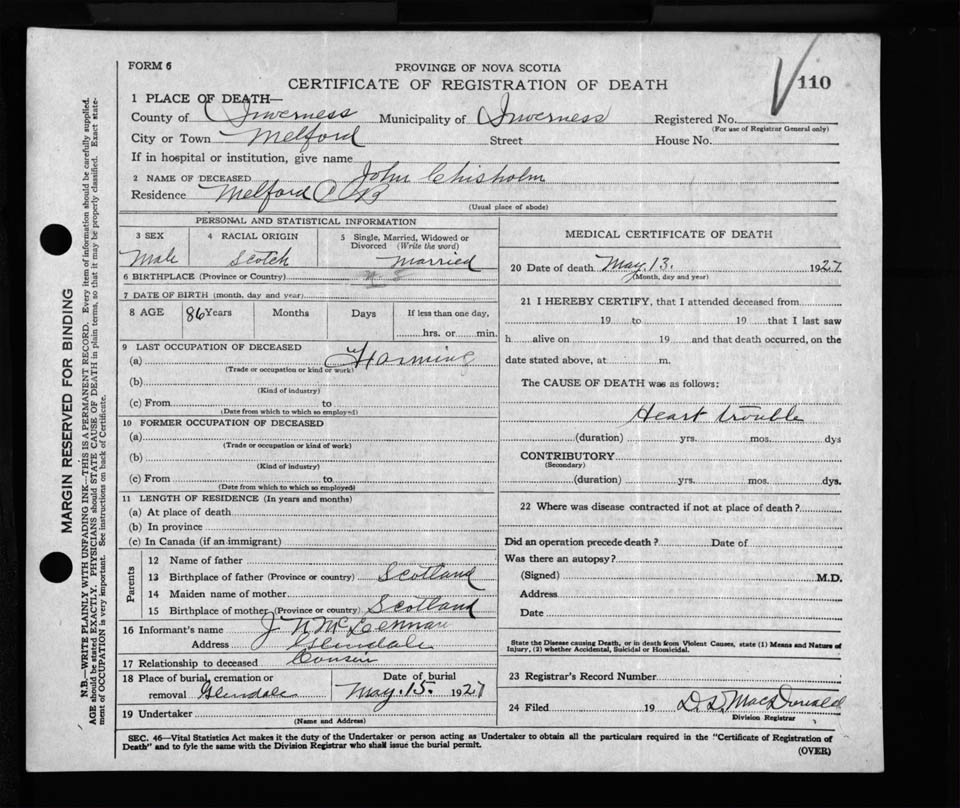 FORM 6
PROVINCE OF NOVA SCOTIA
110
CERTIFICATE OF REGISTRATION OF DEATH
1 PLACE OF DEATH—
County of Inverness Municipality of Inverness Registered No.
(For use of Registrar General only)
City or Town Melford Street House No.
If in hospital or institution, give name
2 NAME OF DECEASED John Chisholm
Residence Melford C B
(Usual place of abode)
PERSONAL AND STATISTICAL INFORMATION
3 SEX 4 RACIAL ORIGIN 5 Single, Married, Widowed or Divorced (Write the word)
Male Scotch Married
6 BIRTHPLACE (Province or Country) N. S
7 DATE OF BIRTH (month, day and year)
8 AGE 86 Years Months Days If less than one day,
hrs. or min.
9 LAST OCCUPATION OF DECEASED
(a) Farming
(Trade or occupation or kind of work)
(b)
(Kind of industry)
(c) From to
(Date from which to which so employed)
10 FORMER OCCUPATION OF DECEASED
(a)
(Trade or occupation or kind of work)
(b)
(Kind of industry)
(c) From to
(Date from which to which so employed)
11 LENGTH OF RESIDENCE (In years and months)
(a) At place of death
(b) In province
(c) In Canada (if an immigrant)
Parents
12 Name of father
13 Birthplace of father (Province or country) Scotland
14 Maiden name of mother
15 Birthplace of mother (Province or country) Scotland
16 Informant's name J N McLennan
Address Glendale
17 Relationship to deceased Cousin
18 Place of burial, cremation or Date of burial
removal Glendale May. 15. 1927
19 Undertaker
(Name and Address)
MEDICAL CERTIFICATE OF DEATH
20 Date of death May. 13. 1927
(Month, day and year)
21 I HEREBY CERTIFY, that I attended deceased from
19 to 19 that I last saw
h alive on 19 and that death occurred, on the
date stated above, at m.
The CAUSE OF DEATH was as follows:
Heart trouble
(duration) yrs. mos. dys
CONTRIBUTORY
(Secondary)
(duration) yrs. mos. dys.
22 Where was disease contracted if not at place of death?
Did an operation precede death? Date of
Was there an autopsy?
(Signed) M.D.
Address
Date
State the Disease causing Death, or in death from Violent Causes, state (1) Means and Nature of
Injury, (2) whether Accidental, Suicidal or Homicidal.
23 Registrar's Record Number
24 Filed 19 D. D. MacDonald
Division Registrar
SEC. 46—Vital Statistics Act makes it the duty of the Undertaker or person acting as Undertaker to obtain all the particulars required in the "Certificate of Registration of
Death" and to fyle the same with the Division Registrar who shall issue the burial permit.
(OVER)
MARGIN RESERVED FOR BINDING
N.B.—WRITE PLAINLY WITH UNFADING INK—THIS IS A PERMANENT RECORD. Every item of information should be carefully supplied.
AGE should be stated EXACTLY. PHYSICIANS should STATE CAUSE OF DEATH in plain terms, so that it may be properly classified. Exact state-
ment of OCCUPATION is very important. See instructions on back of Certificate.